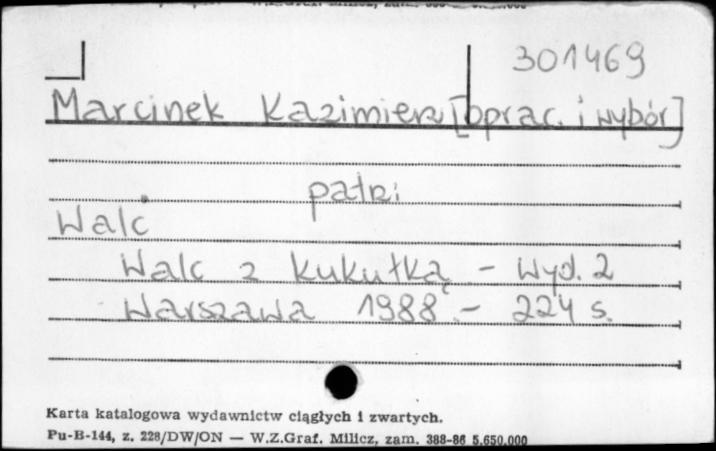 301469
Marcinek Kazimierz [oprac. i wybór]
patrz:
Walc
Walc z kukułką - Wyd. 2
Warszawa 1988 - 224 s.
Karta katalogowa wydawnictw ciągłych i zwartych.
Pu-B-144, z. 228/DW/ON — W.Z.Graf. Milicz, zam. 388-86 5.650.000